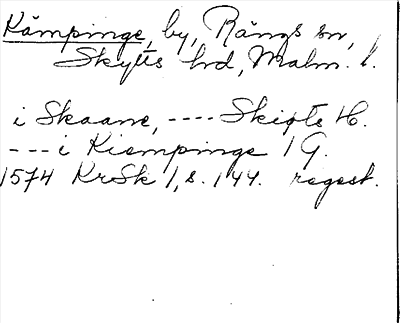 Kämpinge, by, Rängs sn,
Skytts hd, Malm. l.
i Skaane, ---- Skiøts H.
--- i Kiempinge 1 G.
1574 KrSk 1, s. 144. regest.